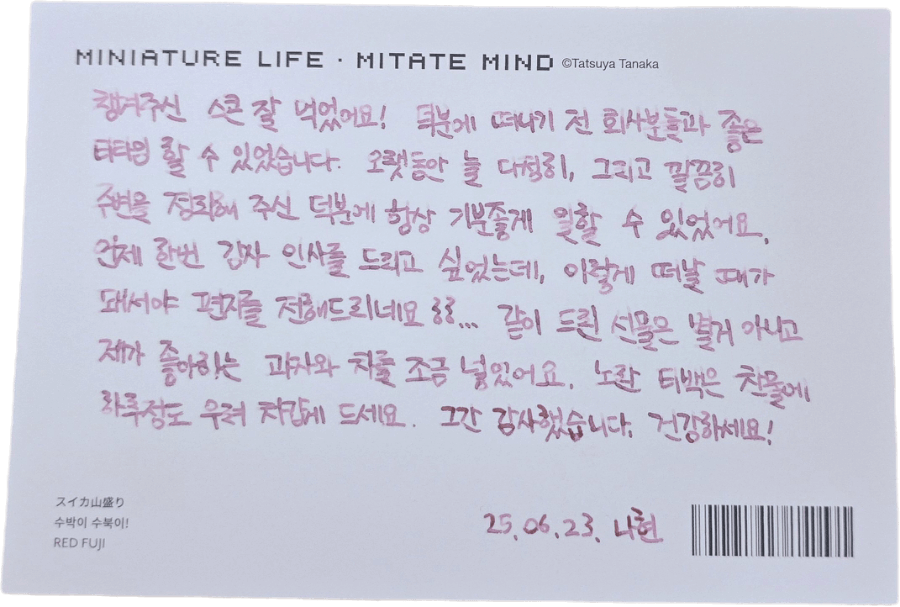 MINIATURE LIFE · MITATE MIND ©Tatsuya Tanaka
챙겨주신 스콘 잘 먹었어요! 덕분에 떠나기 전 회사분들과 좋은
티타임 할 수 있었습니다. 오랫동안 늘 다정히, 그리고 깔끔히
주변을 정리해 주신 덕분에 항상 기분좋게 일할 수 있었어요.
언제 한번 감사 인사를 드리고 싶었는데, 이렇게 떠날 때가
돼서야 편지를 전해드리네요 ㅎㅎ... 같이 드린 선물은 별거 아니고
제가 좋아하는 과자와 차를 조금 넣었어요. 노란 티백은 찬물에
하루정도 우려 차갑게 드세요. 그간 감사했습니다. 건강하세요!
25.06.23. 나현
スイカ山盛り
수박이 수북이!
RED FUJI